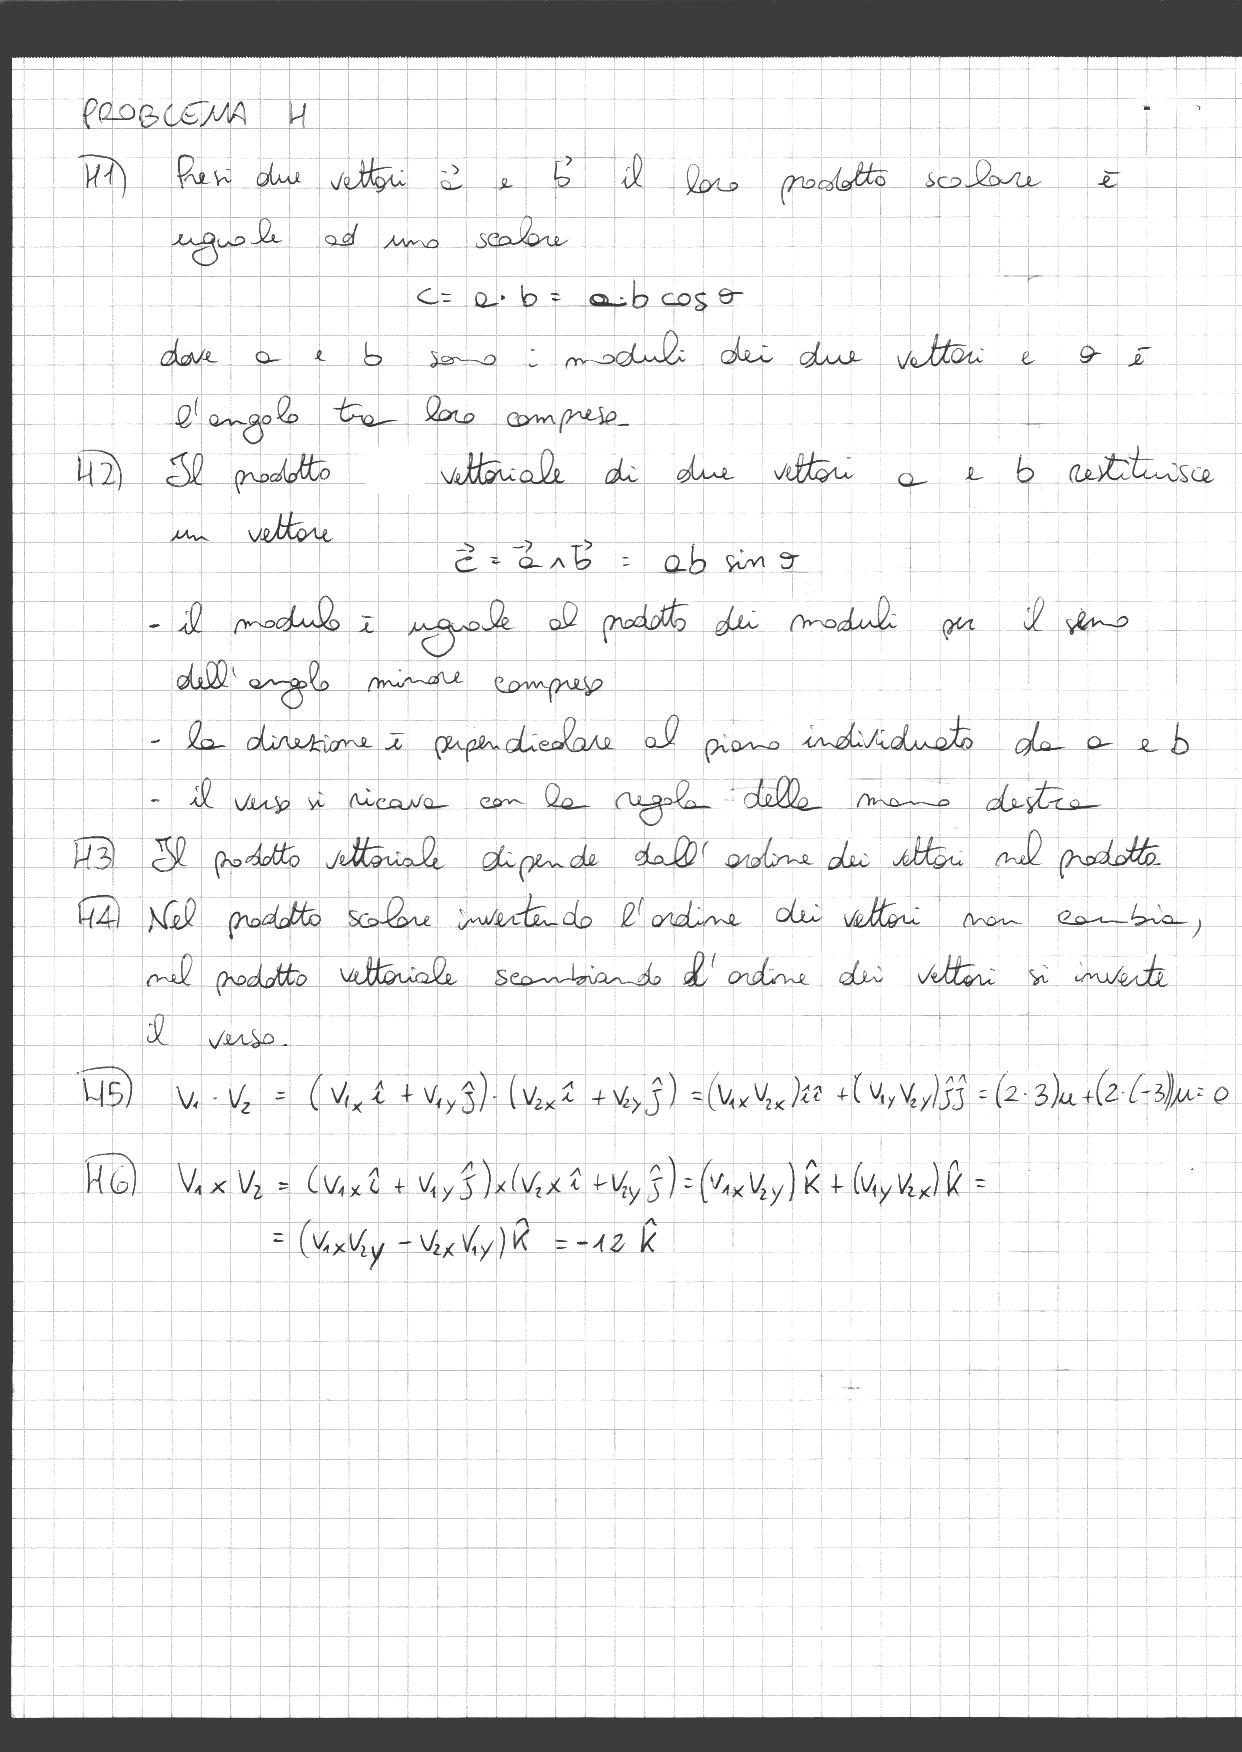 PROBLEMA H
H1) Presi due vettori a⃗ e b⃗ il loro prodotto scalare è
uguale ad uno scalare
c = a · b = a·b cos θ
dove a e b sono i moduli dei due vettori e θ è
l'angolo tra loro compreso
H2) Il prodotto vettoriale di due vettori a e b restituisce
un vettore
c⃗ = a⃗ ∧ b⃗ = ab sin θ
- il modulo è uguale al prodotto dei moduli per il seno
dell'angolo minore compreso
- la direzione è perpendicolare al piano individuato da a e b
- il verso si ricava con la regola della mano destra
H3) Il prodotto vettoriale dipende dall'ordine dei vettori nel prodotto
H4) Nel prodotto scalare invertendo l'ordine dei vettori non cambia,
nel prodotto vettoriale scambiando l'ordine dei vettori si inverte
il verso.
H5) V₁ · V₂ = (V₁ₓ î + V₁y ĵ) · (V₂ₓ î + V₂y ĵ) = (V₁ₓ V₂ₓ) îî + (V₁y V₂y) ĵĵ = (2·3)u + (2·(-3))u = 0
H6) V₁ × V₂ = (V₁ₓ î + V₁y ĵ) × (V₂ₓ î + V₂y ĵ) = (V₁ₓ V₂y) k̂ + (V₁y V₂ₓ) k̂ =
= (V₁ₓ V₂y - V₂ₓ V₁y) k̂ = -12 k̂